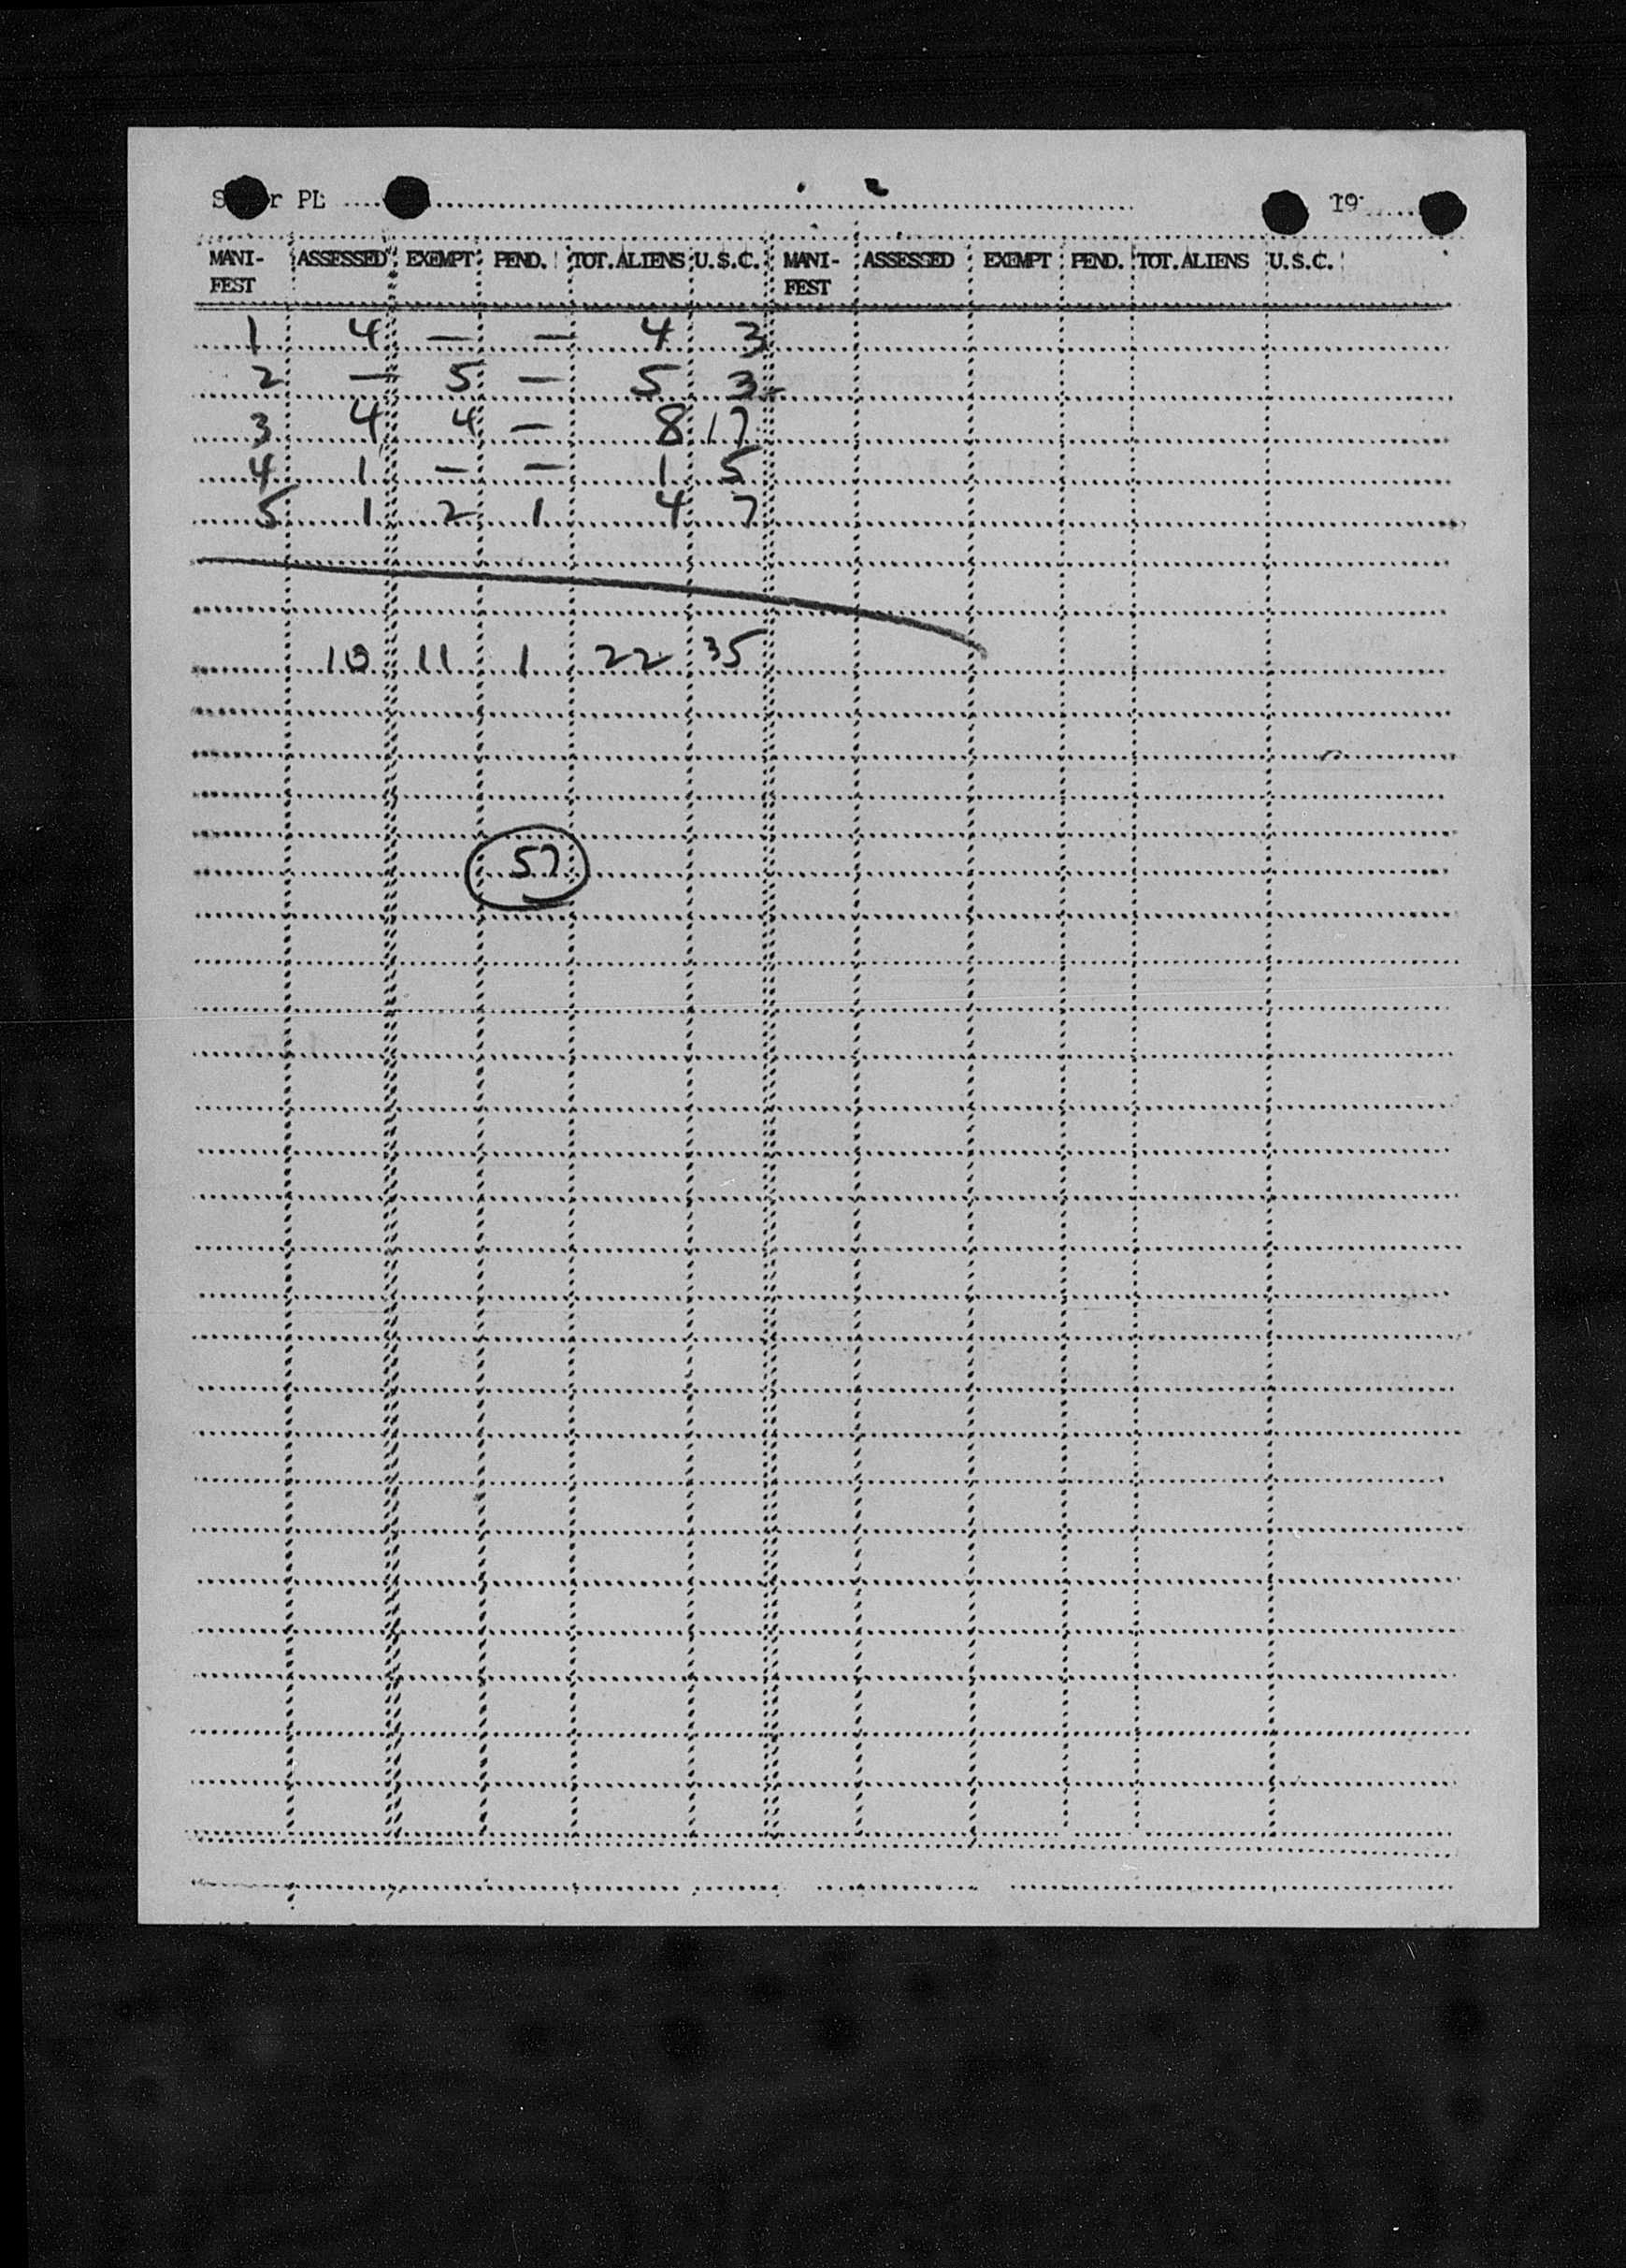 PL 19
MANI- ASSESSED EXEMPT PEND. TOT. ALIENS U.S.C. MANI- ASSESSED EXEMPT PEND. TOT. ALIENS U.S.C.
FEST FEST
1 4 — — 4 3
2 — 5 — 5 3
3 4 4 — 8 17
4 1 — — 1 5
5 1 2 1 4 7
10 11 1 22 35
57